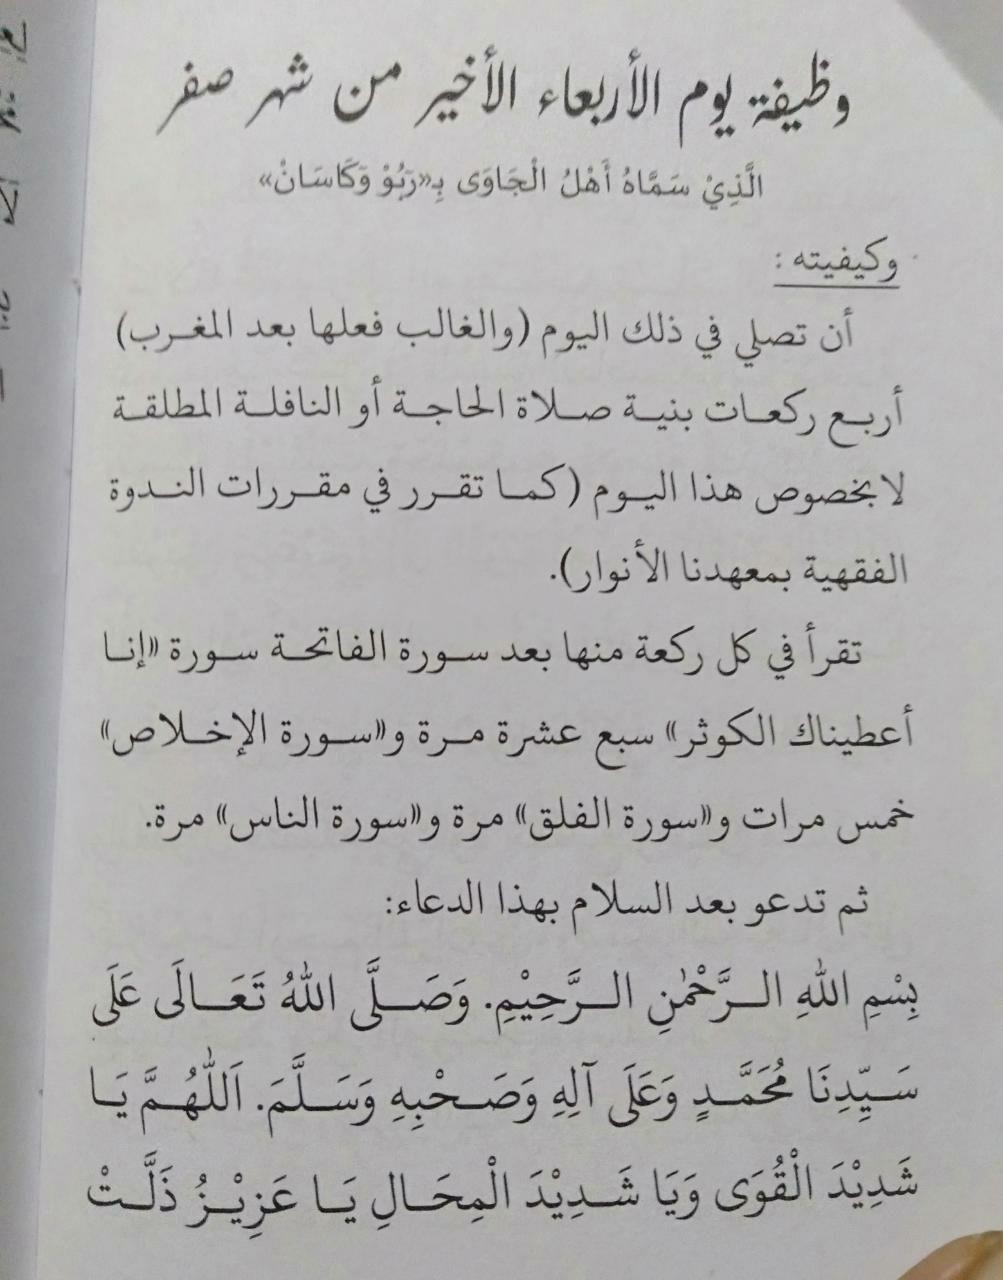 وظيفة يوم الأربعاء الأخير من شهر صفر
الَّذِيْ سَمَّاهُ أَهْلُ الْجَاوَى بِـ«رَبُوْ وَكَاسَانْ»
وكيفيته :
أن تصلي في ذلك اليوم (والغالب فعلها بعد المغرب)
أربع ركعات بنية صلاة الحاجة أو النافلة المطلقة
لا بخصوص هذا اليوم (كما تقرر في مقررات الندوة
الفقهية بمعهدنا الأنوار).
تقرأ في كل ركعة منها بعد سورة الفاتحة سورة «إنا
أعطيناك الكوثر» سبع عشرة مرة و«سورة الإخلاص»
خمس مرات و«سورة الفلق» مرة و«سورة الناس» مرة.
ثم تدعو بعد السلام بهذا الدعاء:
بِسْمِ اللهِ الـرَّحْمٰنِ الـرَّحِيْمِ. وَصَـلَّى اللهُ تَعَـالَى عَلَى
سَـيِّدِنَا مُحَمَّـدٍ وَعَلَى آلِهِ وَصَـحْبِهِ وَسَـلَّمَ. اَللّٰهُـمَّ يَـا
شَدِيْدَ الْقُوَى وَيَا شَـدِيْدَ الْمِحَـالِ يَـا عَزِيْـزُ ذَلَّـتْ